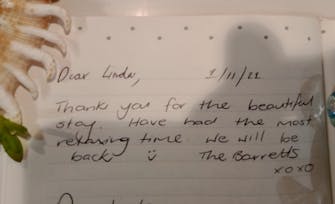 Dear Linda, 1/11/22
Thank you for the beautiful
stay. Have had the most
relaxing time. We will be
back The Barretts
xoxo